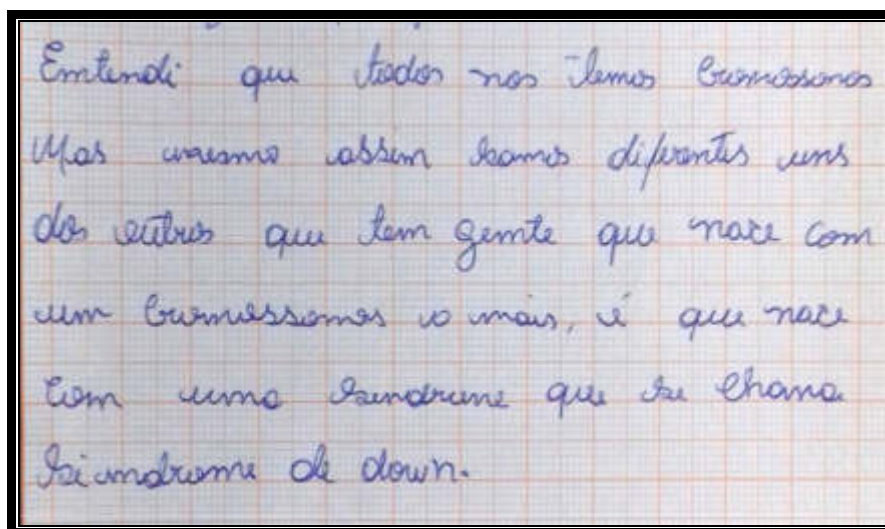 Emtendi que todos nos temos Cromossonos
Mas mesmo assim somos diferentes uns
dos outros que tem gemte que nace com
um Cromossomos a mais, é que nace
com uma sendrume que se chama
siomdrome de down.